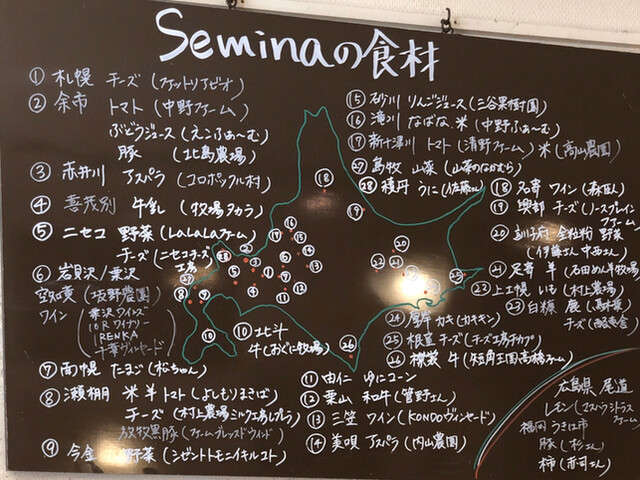 Seminaの食材
① 札幌 チーズ (ファットリアビオ)
② 余市 トマト (中野ファーム)
ぶどうジュース (えこふぁーむ)
豚 (北島農場)
③ 赤井川 アスパラ (コロポックル村)
④ 喜茂別 牛乳 (牧場タカラ)
⑤ ニセコ 野菜 (LaLaLaファーム)
チーズ (ニセコチーズ工房)
⑥ 岩見沢/栗沢
(坂野農園)
ワイン
栗沢ワインズ
10Rワイナリー
⑦ 南幌 たまご (松ちゃん)
⑧ 瀬棚 米 羊 トマト (よしもりまきば)
チーズ (村上農場ミルク工房レプレラ)
放牧黒豚 (ファームブレッスドウィンド)
⑨ 今金 野菜 (シゼントトモニイキルコト)
⑩ 北斗
牛 (おぐに牧場)
⑪ 由仁 ゆにコーン
⑫ 葉山 和牛 (菅野さん)
⑬ 三笠 ワイン (KONDOヴィンヤード)
⑭ 美唄 アスパラ (内山農園)
⑮ 砂川 りんごジュース (三谷果樹園)
⑯ 滝川 なばな 米 (中野ふぁーむ)
⑰ 新十津川 トマト (清野ファーム) 米 (高山農園)
㉗ 島牧 山菜 (山菜のなかむら)
㉘ 積丹 うに (佐藤さん)
⑱ 名寄 ワイン (森臥)
⑲ 興部 チーズ (ノースプレインファーム)
⑳ 訓子府 全粒粉 野菜
(伊藤さん 中西さん)
㉑ 足寄 羊 (石田めん羊牧場)
㉒ 上士幌 いも (村上農場)
㉓ 白糠 鹿
チーズ (酪恵舎)
㉔ 厚岸 カキ (カキキン)
㉕ 根室 チーズ (チーズ工房チカプ)
㉖ 襟裳 牛 (短角王国高橋ファーム)
広島県 尾道
レモン (マスハワシトラスファーム)
福岡 うきは市
豚 (杉さん)
柿